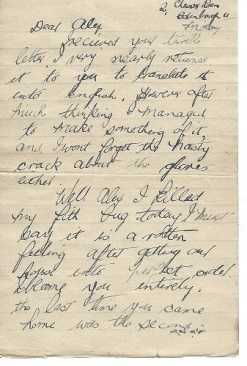 Edinburgh 4
Dear Alex
received your
letter I very nearly returned
it to you to translate it
into English. However after
much thinking I managed
to make something of it,
and I wont forget the nasty
crack about the gloves
either.
Well Alex I killed
my fifth bug today I must
say it is a rotten
feeling after getting our
house into perfect order.
blame you entirely.
the last time you came
home was the second